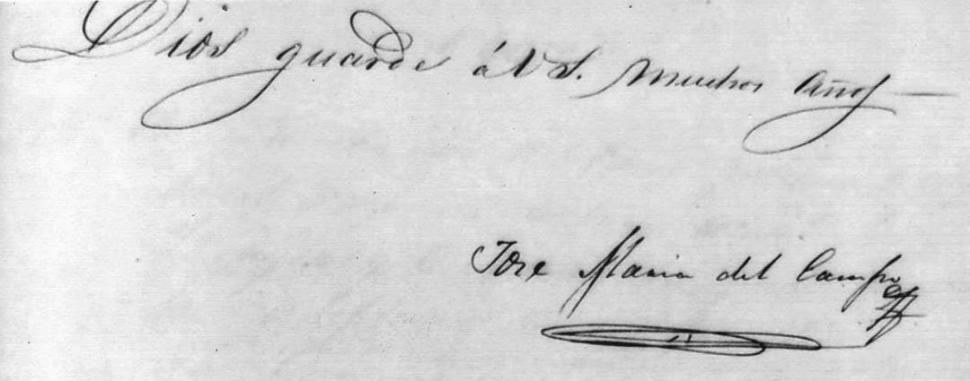 Dios guarde á V S. muchos años
Jose Maria del Campo